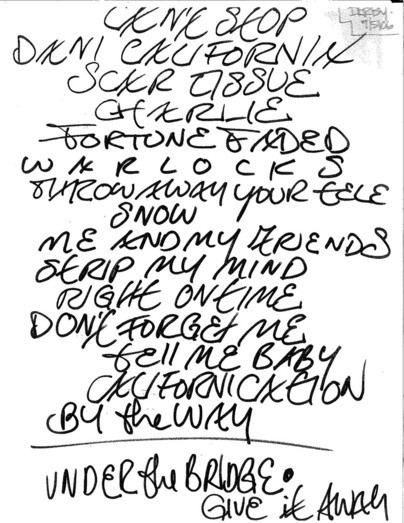 DERBY.
7/5/06
CAN'T STOP
DANI CALIFORNIA
SCAR TISSUE
CHARLIE
FORTUNE FADED
WARLOCKS
THROW AWAY YOUR TELE
SNOW
ME AND MY FRIENDS
STRIP MY MIND
RIGHT ON TIME
DON'T FORGET ME
tell ME BABY
CALIFORNICATION
BY the WAY
UNDER the BRIDGE.
GIVE it AWAY